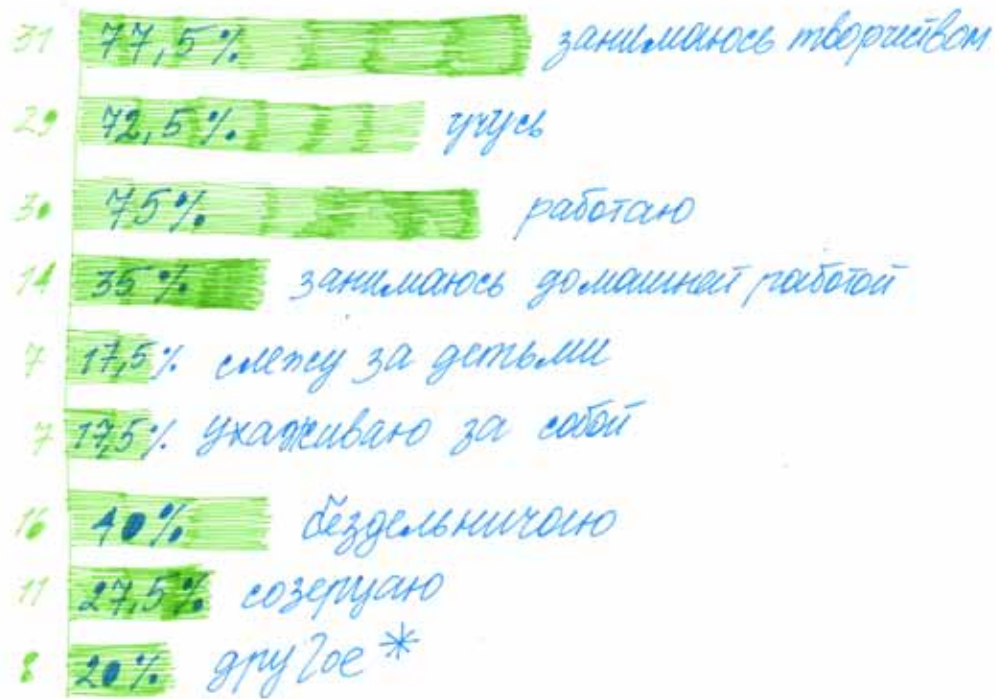 31 77,5% занимаюсь творчеством
29 72,5% учусь
30 75% работаю
14 35% занимаюсь домашней работой
7 17,5% слежу за детьми
7 17,5% ухаживаю за собой
16 40% бездельничаю
11 27,5% созерцаю
8 20% другое *